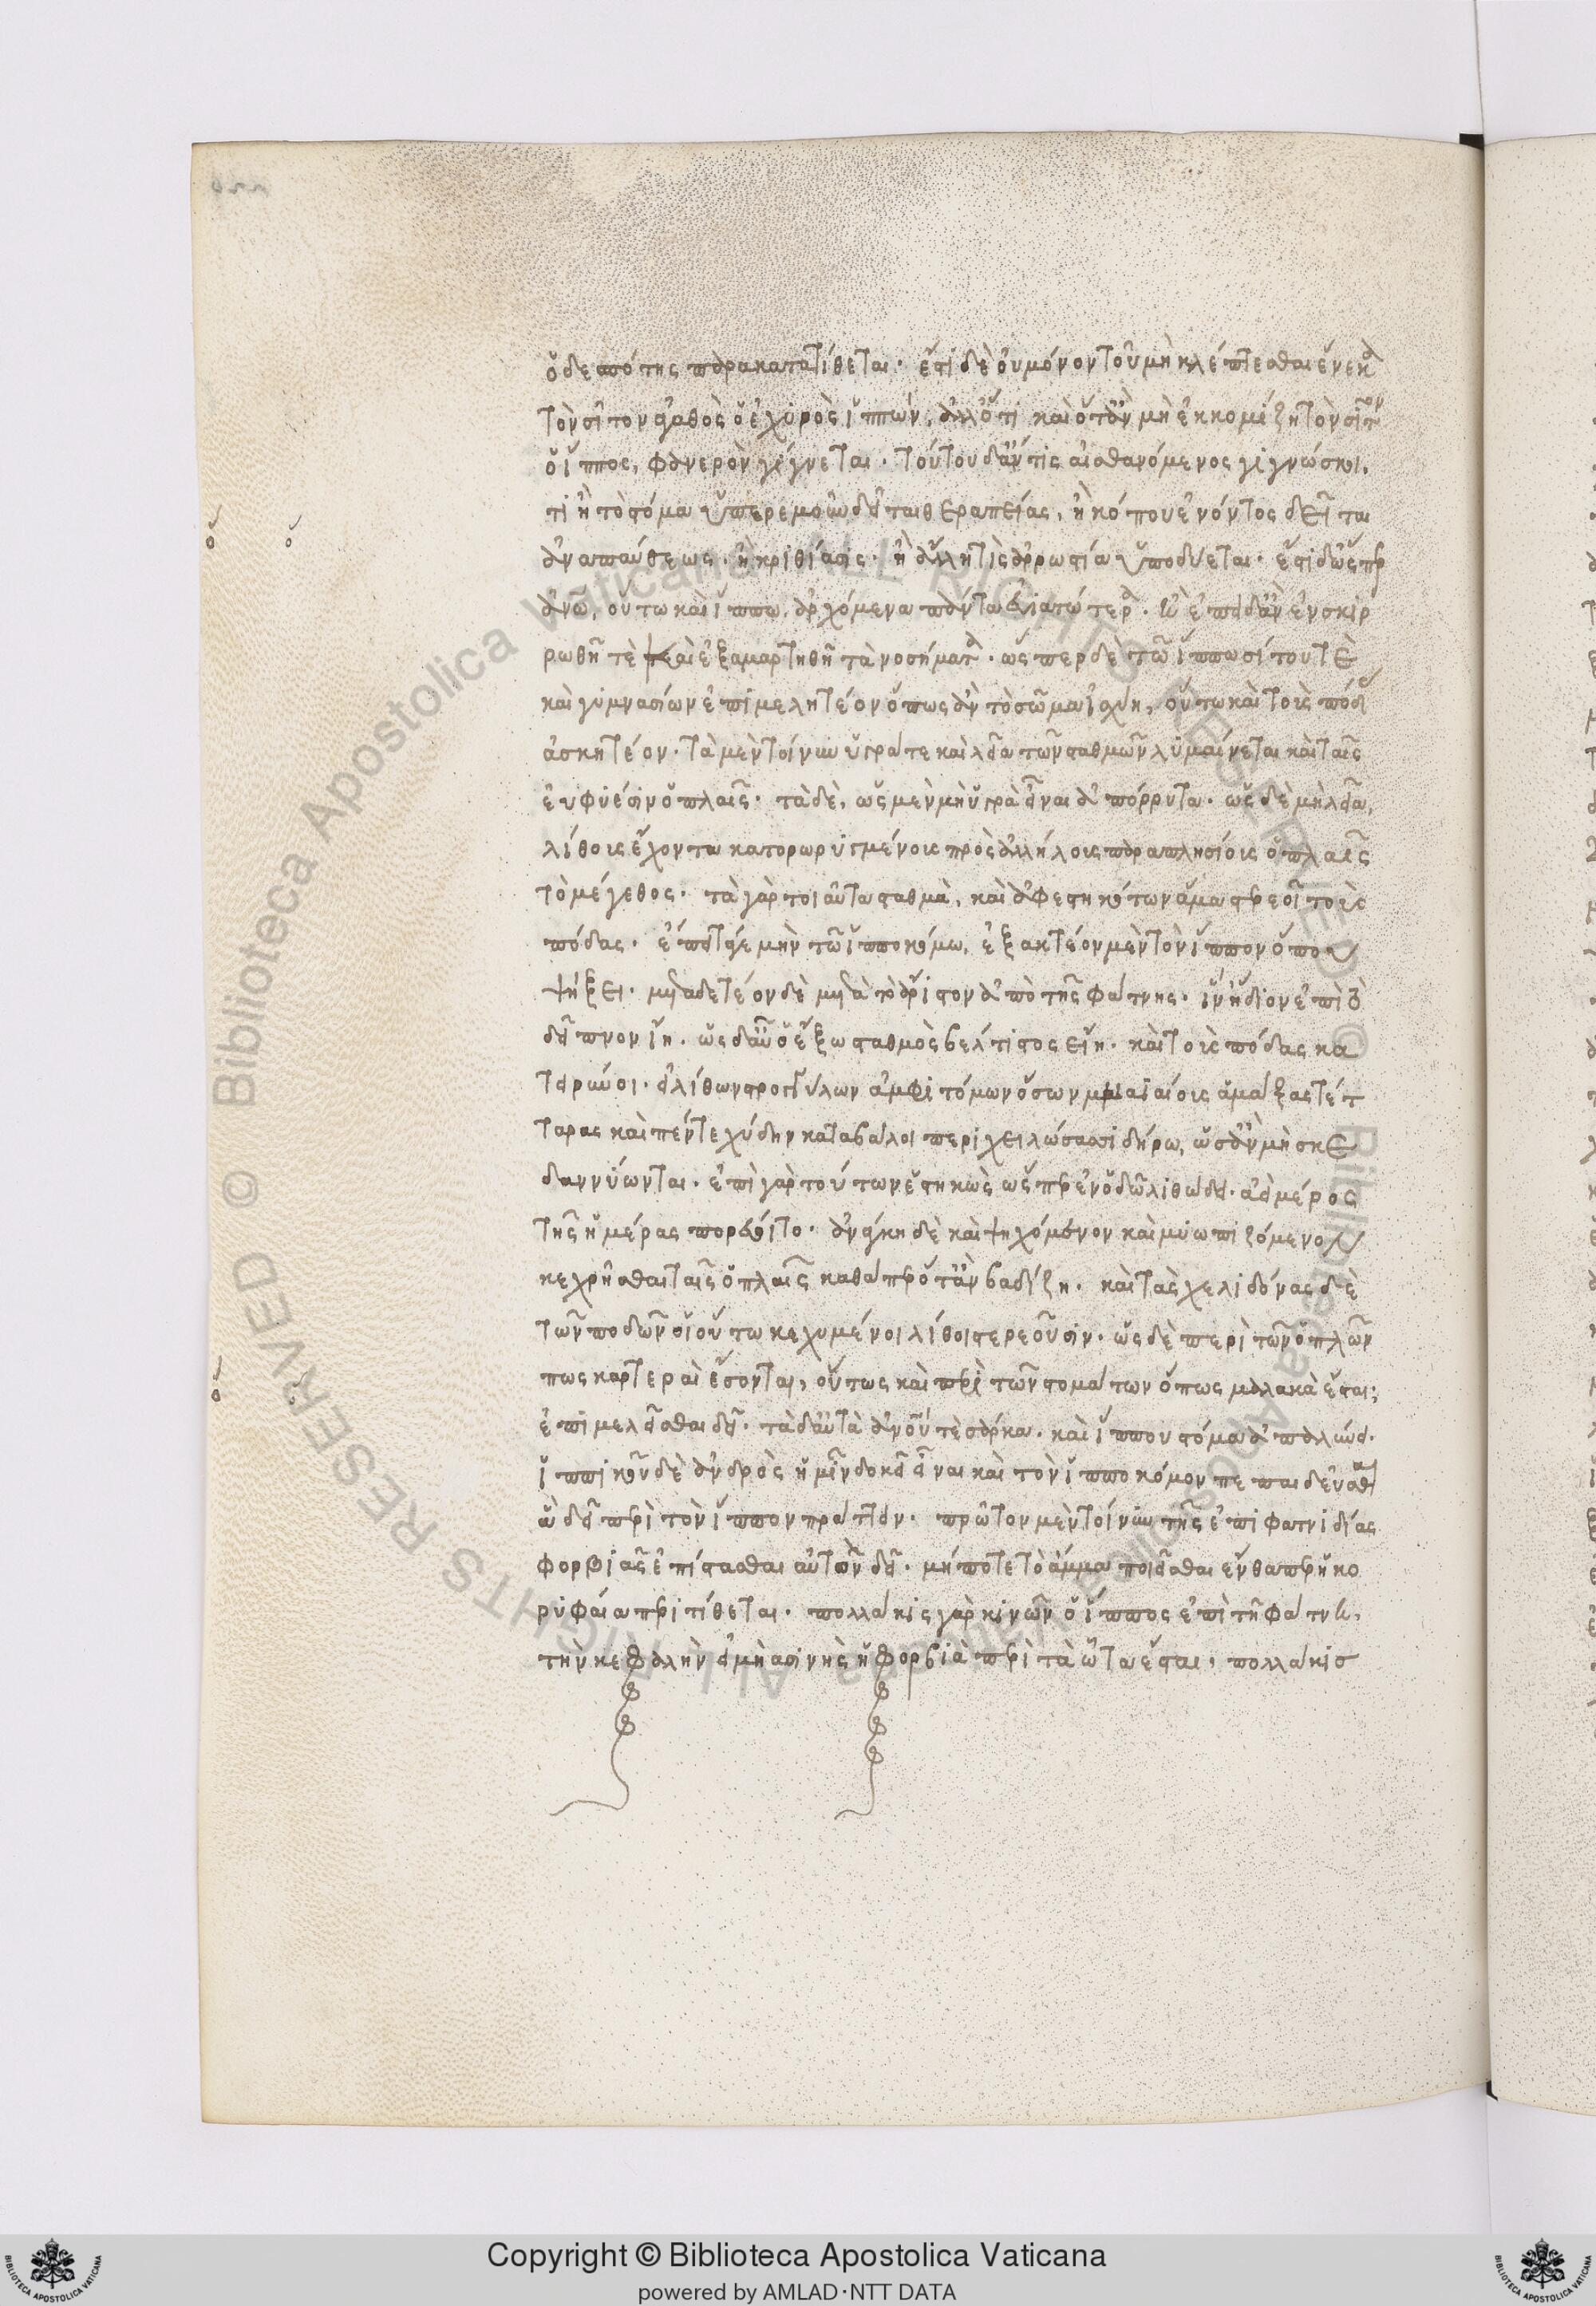 ὁ δεσπότης παρακατατίθεται· ἔστι δὲ οὐ μόνον τοῦ μὴ κλέπτεσθαι ἕνεκα
τὸν σῖτον ἀγαθὸς ὁ ἐχυρὸς ἱππών, ἀλλ' ὅτι καὶ ὅταν μὴ ἐκκομίζῃ τὸν σῖτον
ὁ ἵππος, φανερὸν γίγνεται. τούτου δ' ἄν τις αἰσθανόμενος γιγνώσκοι,
τι ἢ τὸ σῶμα ὑπεραιμοῦν δεῖται θεραπείας, ἢ κόπου ἐνόντος δεῖται
ἀναπαύσεως. ἢ κριθίασις· ἢ ἄλλη τις ἀρρωστία ὑποδύεται· ἔστι δ' ὥσπερ
ἀνῶ, οὕτω καὶ ἵππω, ἀρχόμενα πάντα εὐιατώτερα. ἢ ἐπειδὰν ἐνσκιρ
ρωθῇ τὲ καὶ ἐξαμαρτηθῇ τὰ νοσήματα. ὥσπερ δὲ τῶ ἵππω σίτου τε
καὶ γυμνασίων ἐπιμελητέον ὅπως ἂν τὸ σῶμα ἰσχύη, οὕτω καὶ τοὺς πόδας
ἀσκητέον. τὰ μὲν τοίνυν ὑγρά τε καὶ λεῖα τῶν σταθμῶν λυμαίνεται καὶ ταῖς
εὐφυέσιν ὁπλαῖς· τὰ δὲ, ὡς μὲν μὴ ὑγρὰ εἶναι ἀπόρρυτα. ὡς δὲ μὴ λεῖα,
λίθοις ἔχοντα κατορωρυγμένοις πρὸς ἀλλήλοις παραπλησίοις ὁπλαῖς
τὸ μέγεθος· τὰ γὰρ τοιαῦτα σταθμὰ, καὶ ἀφεστηκότων ἅμα στερεοῖ τοὺς
πόδας. ἔπειτά γε μὴν τῶ ἱπποκόμω, ἐξακτέον μὲν τὸν ἵππον ὅπου
ψήξει· μεταδετέον δὲ μετὰ τὸ ἄριστον ἀπὸ τῆς φάτνης. ἵν' ἥδιον ἐπὶ τὸ
δεῖπνον ἴη. ὧς δ' αὖ ὁ ἔξω σταθμὸς βέλτιστος εἴη. καὶ τοὺς πόδας κα
ταρωύοι· εἰ λίθων στρογγύλων ἀμφιτόμων ὅσων μναϊαίοις ἁμάξας τέτ
ταρας καὶ πέντε χύδην καταβάλοι περιχειλώσας σιδήρω, ὡς ἂν μὴ σκε
δαννύωνται. ἐπὶ γὰρ τούτων ἑστηκὼς ὥσπερ ἐν ὁδῶ λιθώδει. ἀεὶ μέρος
τῆς ἡμέρας πορεύοιτο. ἀνάγκη δὲ καὶ ψηχόμενον καὶ μυωπιζόμενον
κεχρῆσθαι ταῖς ὁπλαῖς καθάπερ ὅταν βαδίζη. καὶ τὰς χελιδόνας δὲ
τῶν ποδῶν οἱ οὕτω κεχυμένοι λίθοι στερεοῦσιν. ὡς δὲ περὶ τῶν ὁπλῶν
πως καρτεραὶ ἔσονται, οὕτως καὶ περὶ τῶν στομάτων ὅπως μαλακὰ ἔσται;
ἐπιμελεῖσθαι δεῖ. τὰ δ' αὐτὰ ἀνοῦ τὲ σάρκα. καὶ ἵππου στόμα ἁπαλύνει.
ἱππικοῦ δὲ ἀνδρὸς ἡμῖν δοκεῖ εἶναι καὶ τὸν ἱπποκόμον πεπαιδεῦσθαι
ἃ δεῖ περὶ τὸν ἵππον πράττειν. πρῶτον μὲν τοίνυν τῆς ἐπιφατνιδίας
φορβιᾶς ἐπίστασθαι αὐτὸν δεῖ. μήποτε τὸ ἅμμα ποιεῖσθαι ἔνθαπερ ἡ κο
ρυφαία περιτίθεται. πολλάκις γὰρ κινῶν ὁ ἵππος ἐπὶ τῇ φάτνη,
τὴν κεφαλὴν εἰ μὴ ἀσινὴς ἡ φορβιὰ περὶ τὰ ὦτα ἔσται, πολλάκισ